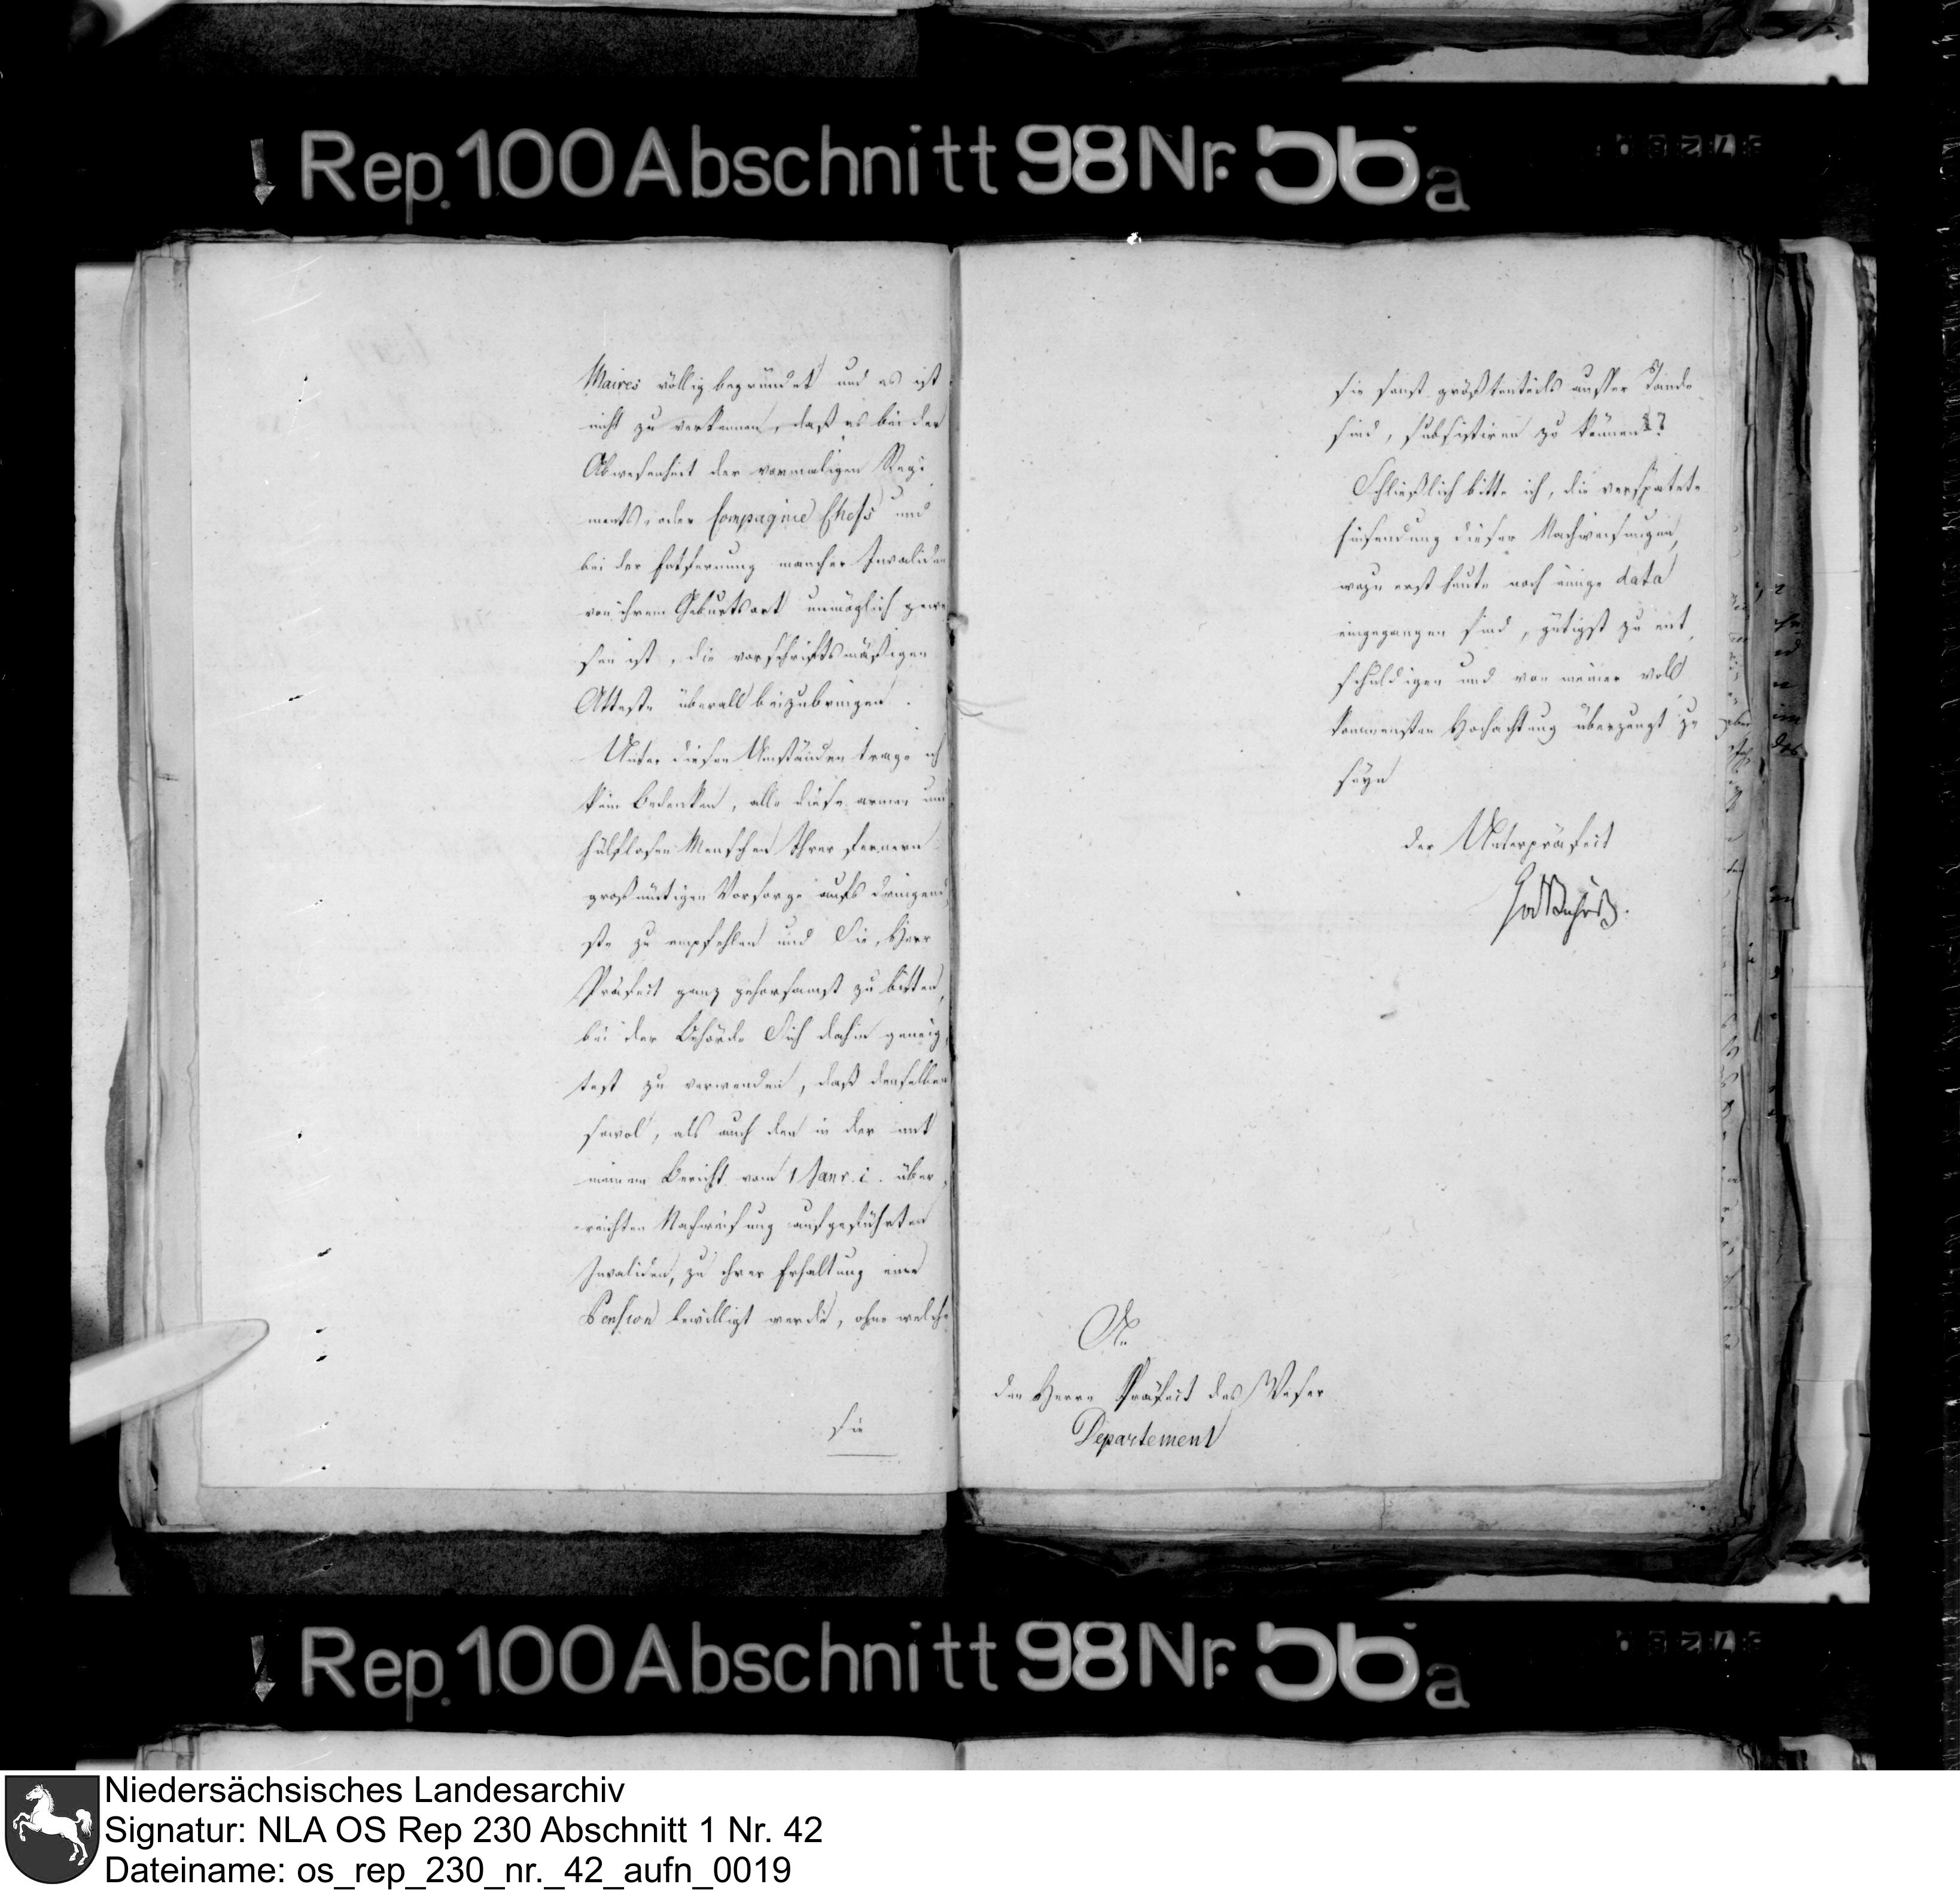 Rep. 100 Abschnitt 98 Nr. 56a
Maires völlig begründet und es ist
nicht zu verkennen, daß es bei der
Abwesenheit der vormaligen Regi
ments, oder Compagnie Chefs und
bei der Entfernung mancher Invaliden
von ihrem Geburtsort unmöglich gewe
sen ist, die vorschriftsmäßigen
Atteste überall beizubringen.
Unter diesen Umständen trage ich
kein Bedenken, alle diese armen und
hülflosen Menschen Ihrer fernern
großmütigen Vorsorge aufs dringend
ste zu empfehlen und Sie, Herr
Präfect ganz gehorsamst zu bitten,
bei der Behörde Sich dahin geneig
test zu verwenden, daß denselben
sowol, als auch den in der mit
meinem Bericht vom 1 Janr. c. über
reichten Nachweisung aufgeführten
Invaliden, zu ihrer Erhaltung eine
Pension bewilligt werde, ohne welche
sie
sie sonst größtenteils ausser Stande
sind, subsistiren zu können
Schließlich bitte ich, die verspätete
Einsendung dieser Nachweisungen,
wozu erst heute noch einige data
eingegangen sind, gütigst zu ent
schuldigen und von meiner voll
kommensten Hochachtung überzeugt zu
seyn
der Unterpräfect
An
den Herrn Präfect des Weser
Departement
Rep. 100 Abschnitt 98 Nr. 56a
Niedersächsisches Landesarchiv
Signatur: NLA OS Rep 230 Abschnitt 1 Nr. 42
Dateiname: os_rep_230_nr._42_aufn_0019